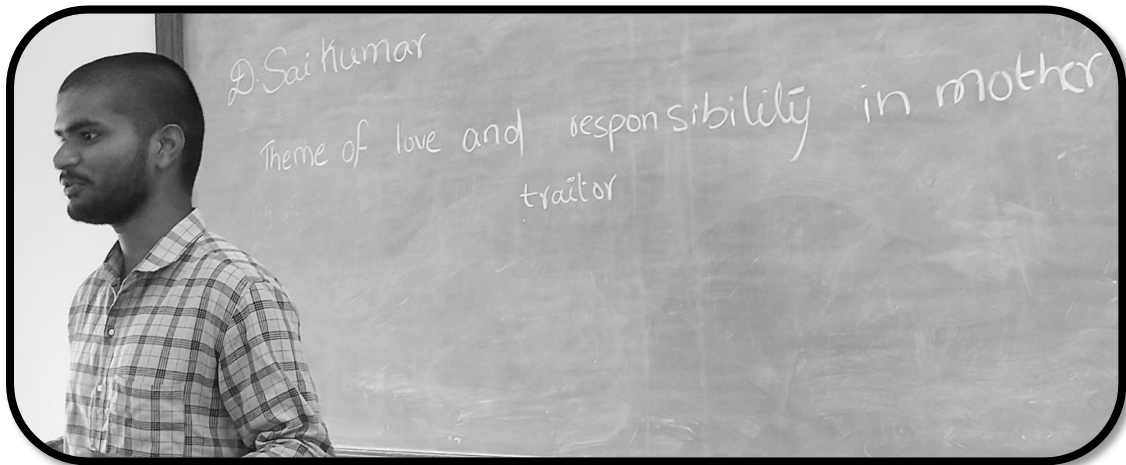 D. Sai Kumar
Theme of love and responsibility in mother
traitor